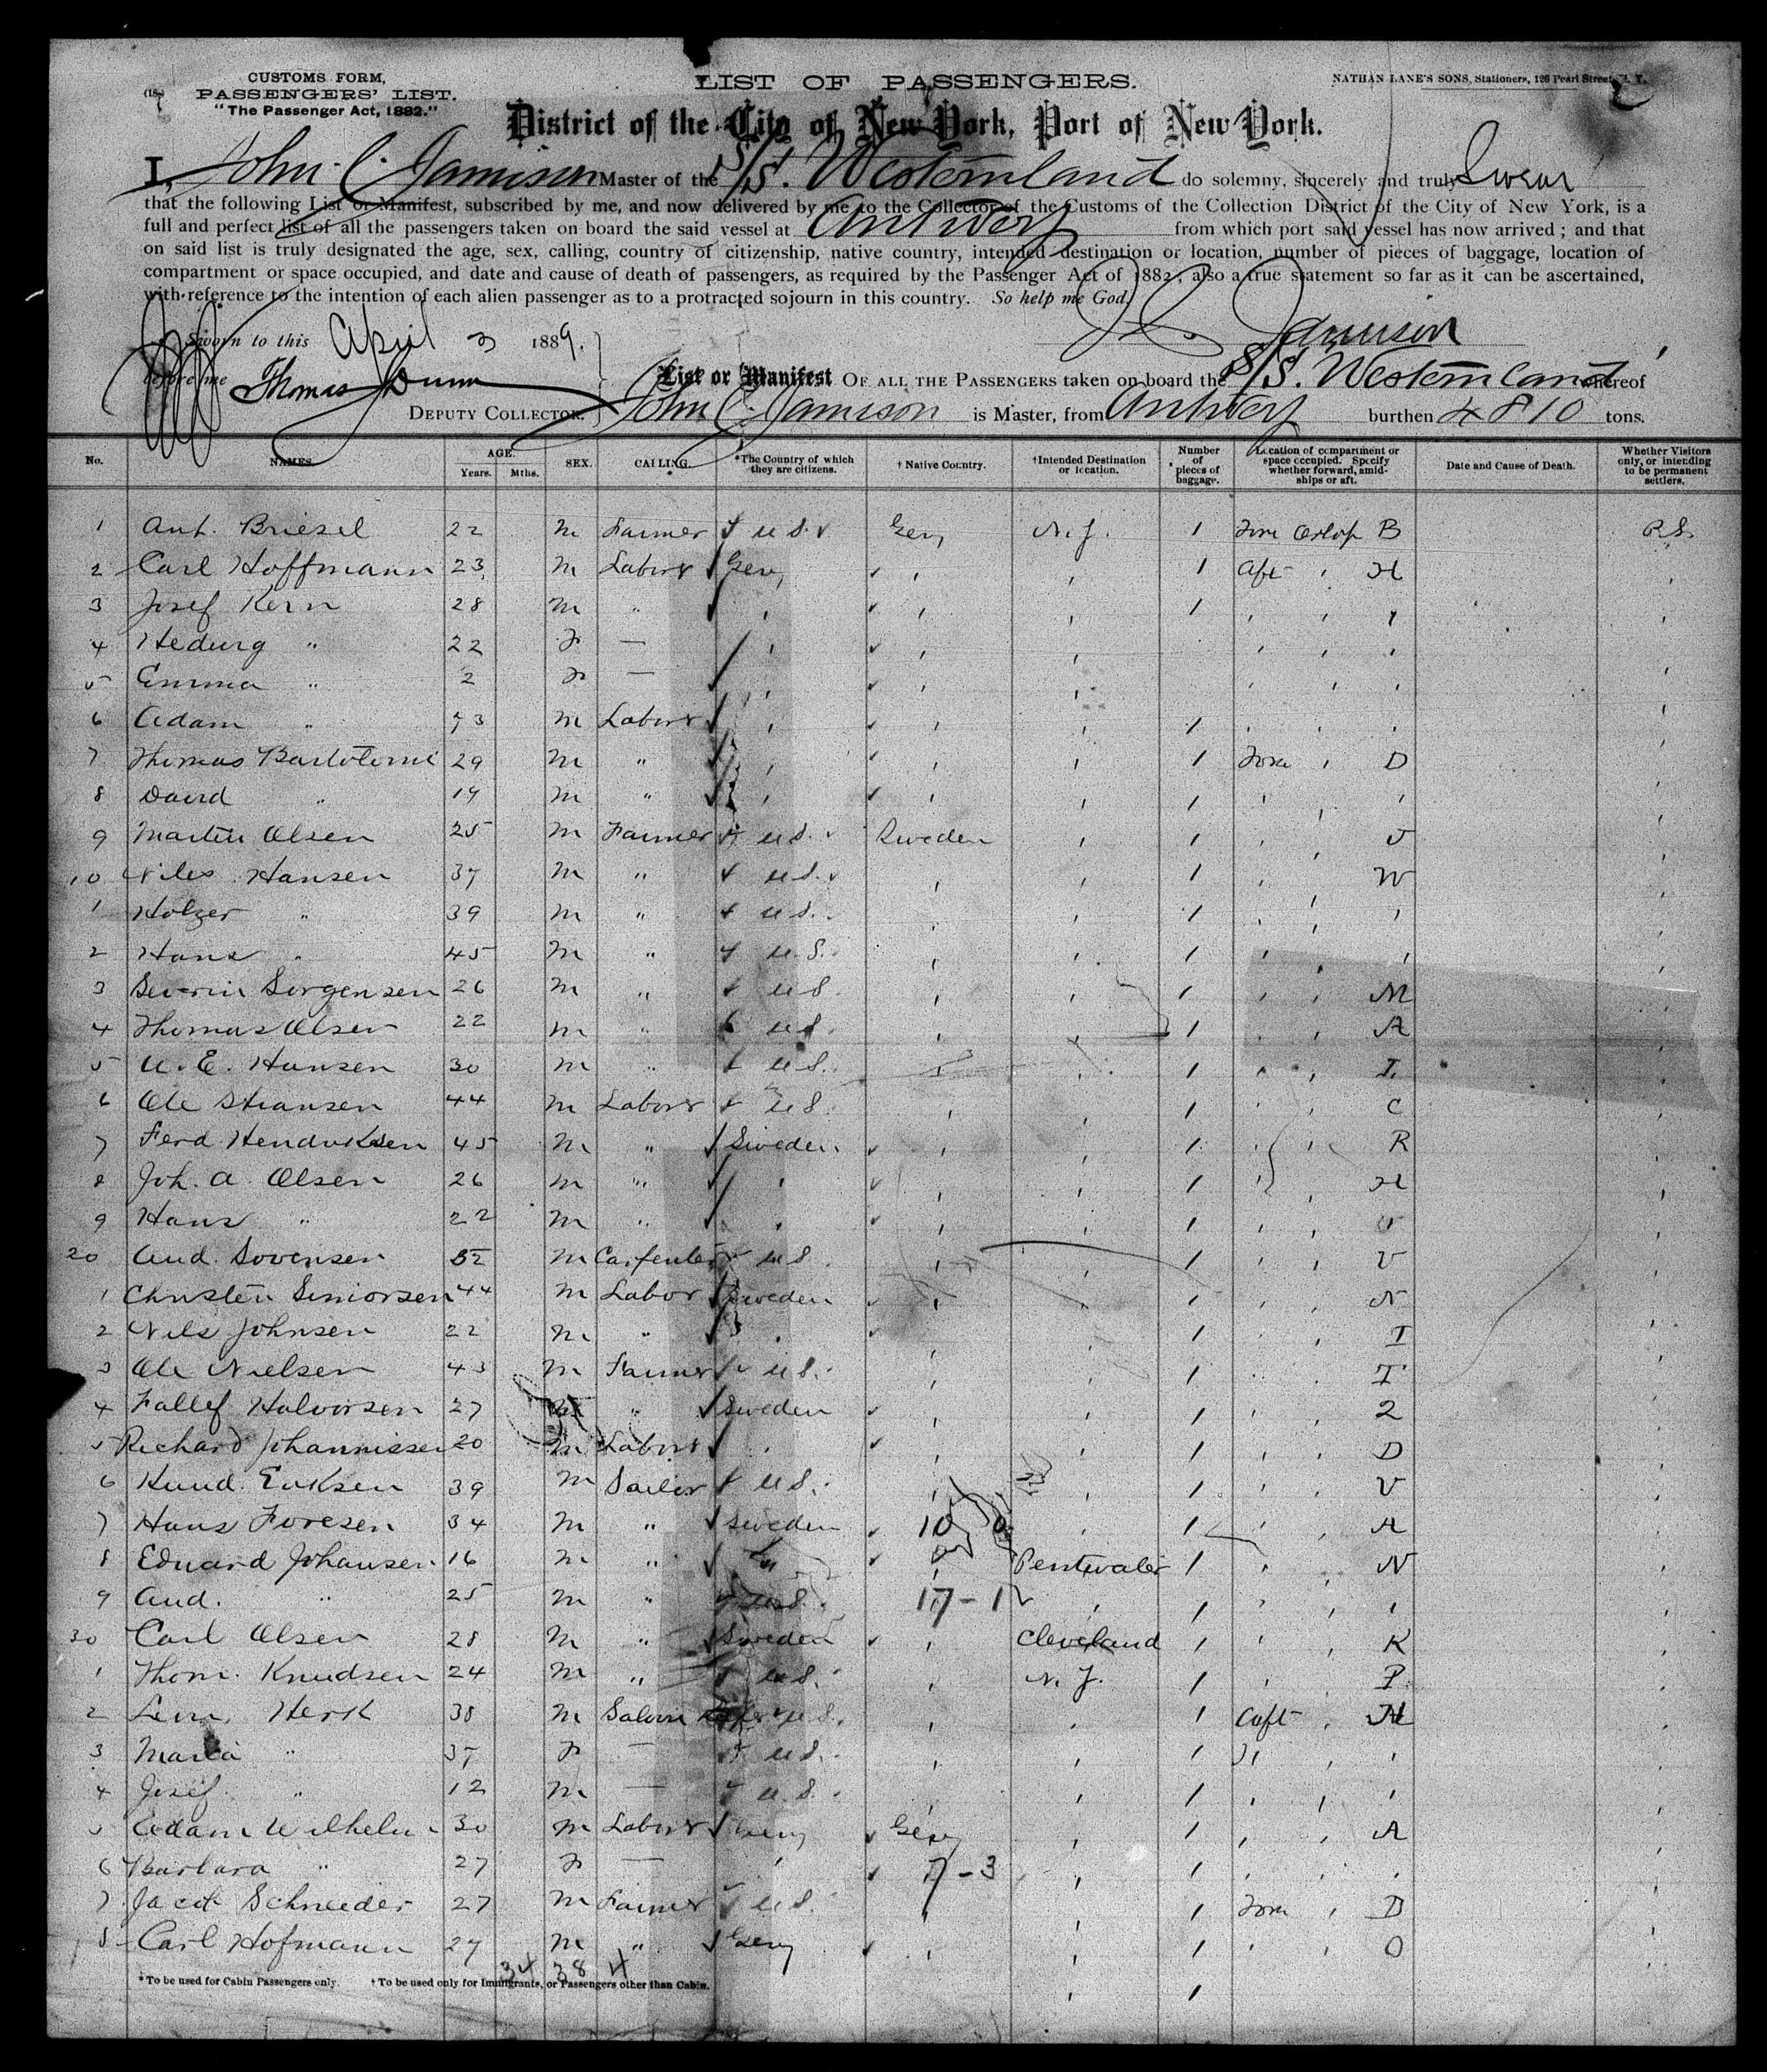 CUSTOMS FORM,
PASSENGERS' LIST.
"The Passenger Act, 1882."
LIST OF PASSENGERS.
NATHAN LANE'S SONS, Stationers, 126 Pearl Street, N. Y.
District of the City of New York, Port of New York.
I, John C. Jamison Master of the S/S. Westernland do solemny, sincerely and truly Swear
that the following List or Manifest, subscribed by me, and now delivered by me to the Collector of the Customs of the Collection District of the City of New York, is a
full and perfect list of all the passengers taken on board the said vessel at Antwerp from which port said vessel has now arrived; and that
on said list is truly designated the age, sex, calling, country of citizenship, native country, intended destination or location, number of pieces of baggage, location of
compartment or space occupied, and date and cause of death of passengers, as required by the Passenger Act of 1882; also a true statement so far as it can be ascertained,
with reference to the intention of each alien passenger as to a protracted sojourn in this country. So help me God.
Jamison
Sworn to this April 3 1889.
before me Thomas Dunn
List or Manifest OF ALL THE PASSENGERS taken on board the S/S. Westernland whereof
DEPUTY COLLECTOR. John C. Jamison is Master, from Antwerp burthen 4810 tons.
No. NAMES. AGE. Years. Mths. SEX. CALLING. *The Country of which they are citizens. †Native Country. †Intended Destination or location. Number of pieces of baggage. Location of compartment or space occupied. Specify whether forward, amidships or aft. Date and Cause of Death. Whether Visitors only, or intending to be permanent settlers.
1 Ant. Briesel 22 M Farmer U.S. Gery N.Y. 1 Fore Orlop B P.S.
2 Carl Hoffmann 23 M Labor Gery 1 Aft H
3 Josef Kern 28 M " 1
4 Hedwig " 22 F —
5 Emma " 2 F —
6 Adam " 73 M Labor 1
7 Thomas Bartolome 29 M " 1 Fore D
8 David " 19 M " 1
9 Martin Olsen 25 M Farmer U.S. Sweden 1
10 Niles Hansen 37 M " U.S. 1 W
1 Holger " 39 M " U.S. 1
2 Hans " 45 M " U.S. 1
3 Severin Sorgensen 26 M " U.S. 1 M
4 Thomas Olsen 22 M " U.S. 1 A
5 U. E. Hansen 30 M " U.S. 1 I
6 Ole 44 M Labor U.S. 1 C
7 Ferd Hendriksen 45 M " Sweden 1 R
8 Joh. A. Olsen 26 M " 1 H
9 Hans " 22 M " 1
20 And. Sorensen M Carpenter U.S. 1 V
1 Christen Simorsen 44 M Labor Sweden 1 N
2 Nils Johnsen 22 M " 1 I
3 Ole Nielsen 43 M Farmer U.S. 1 T
4 Fallef Halvorsen 27 " Sweden 1 2
5 Richard Johannissen 20 M Labor 1 D
6 Knud. Eriksen 39 M Sailor U.S. 1 V
7 Hans Foresen 34 M " Sweden 10 1 A
8 Eduard Johansen 16 M " " Pentwater 1 N
9 And. " 25 M " U.S. 17-1 1
30 Carl Olsen 28 M " Sweden Cleveland 1 K
1 Thom. Knudsen 24 M " U.S. N.Y. 1 P
2 Herk 38 M Saloon U.S. 1 Aft H
3 Maria " 37 F — U.S. 1
4 Josef " 12 M — U.S. 1
5 Adam Wilhelm 30 M Labor Gery Gery 1 A
6 Barbara " 27 F — 17-3 1
7 Jacob Schneider 27 M Farmer U.S. 1 Fore D
8 Carl Hofmann 27 M " Gery 1 O
34 38 4
*To be used for Cabin Passengers only. †To be used only for Immigrants, or Passengers other than Cabin.
1